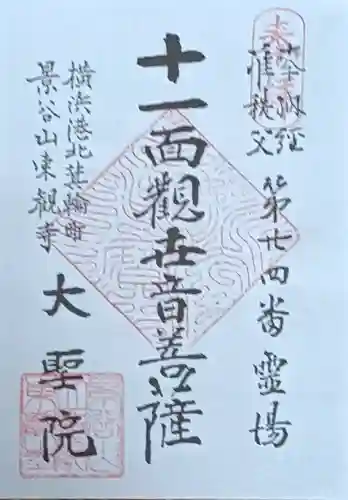 奉拝
奉納経
准秩父
第廿四番霊場
十一面観世音菩薩
横浜港北箕輪町
景谷山東観寺
大聖院